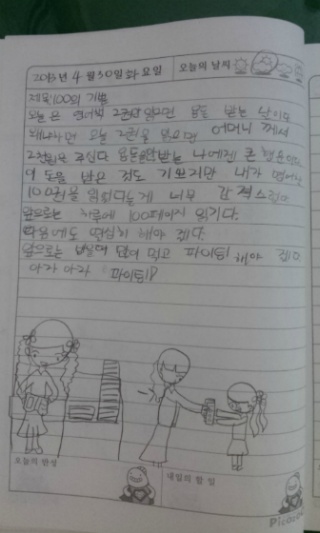 2013년 4월 30일 화요일 오늘의 날씨
제목: 100의 기쁨
오늘은 영어책 2권만 읽으면 용돈 받는 날이다
왜냐하면 오늘 2권을 읽으면 어머니 께서
2천원을 주신다 용돈을 안받는 나에겐 큰 행운이다
이 도움 받은 것도 기쁘지만 내가 영어책
100권을 읽었다는게 너무 자랑스럽다
앞으로는 하루에 100페이지 읽기다.
다음에도 열심히 해야 겠다.
앞으로는 많이 먹고 파이팅 해야 겠다
아자 아자 파이팅!
오늘의 반성
내일의 할 일